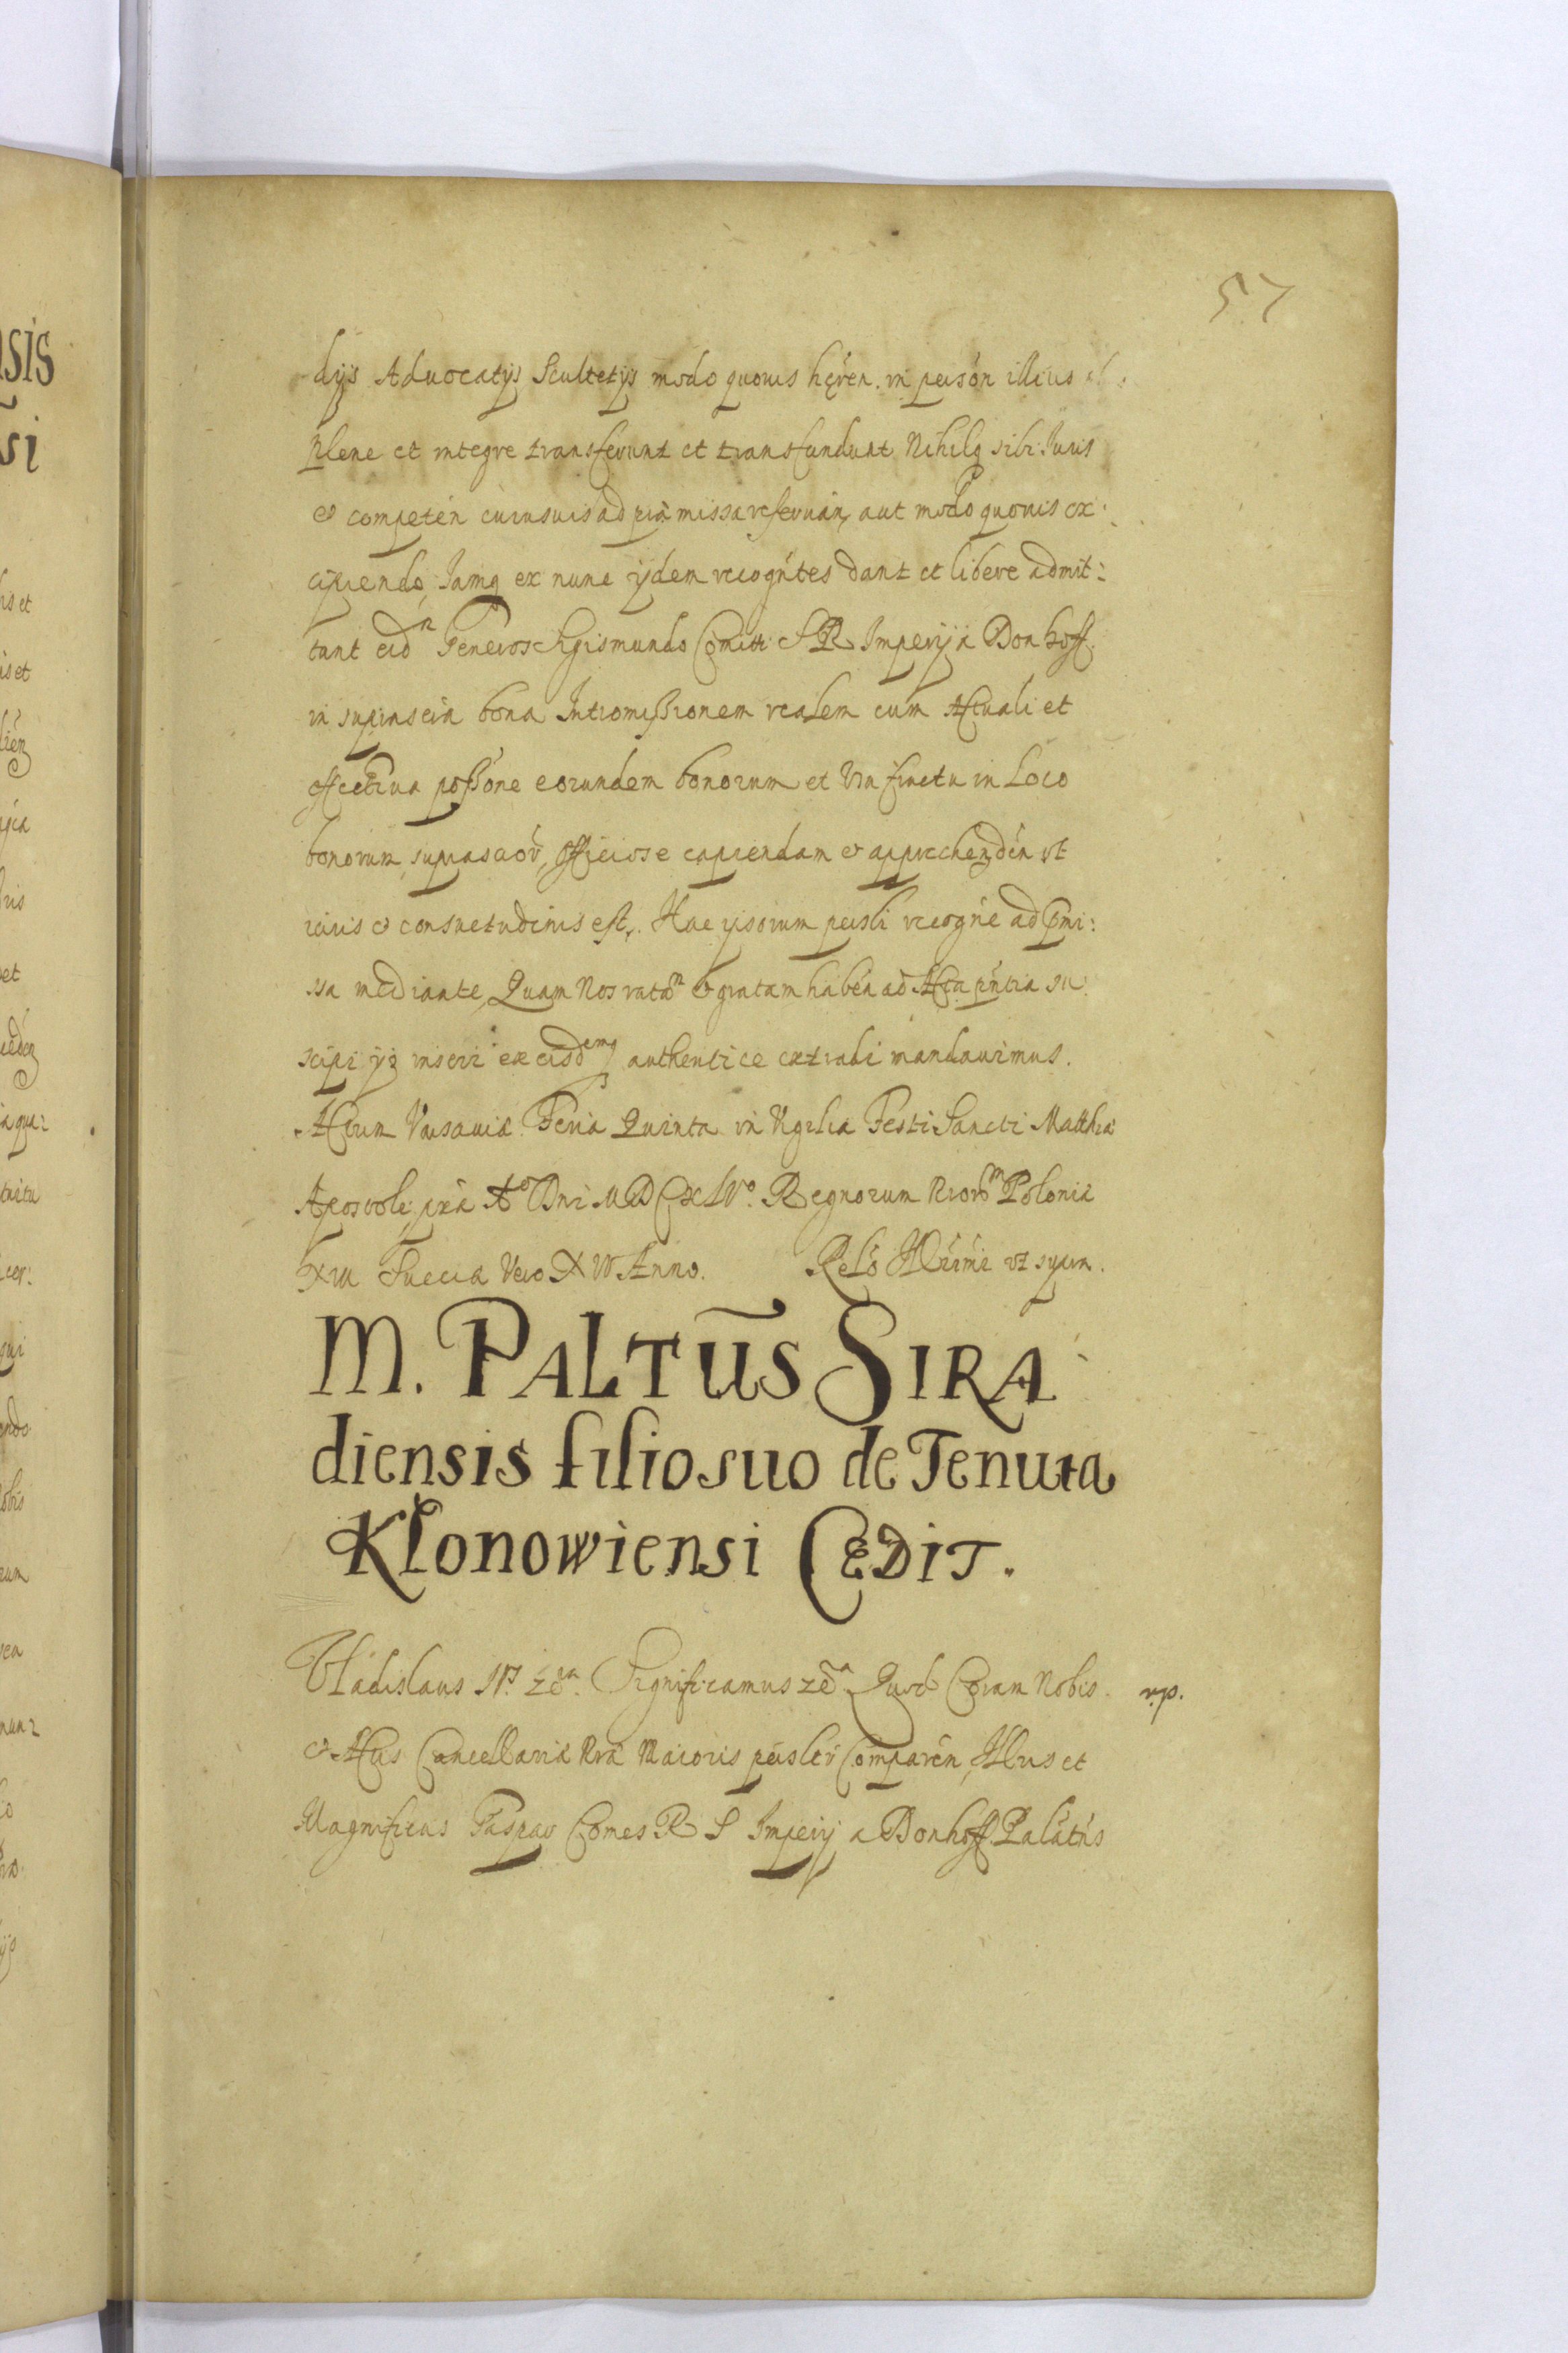 57
dijs Advocatijs Scultetijs modo quovis hęren. in persón illius
plene et integre transferunt et transfundunt Nihilq sibi Iuris
et competén cuiusvis ad præmissa reservań aut modo quovis ex:
cipiendo, Iamq ex nunc ijdem recogńtes dant et libere admit:
tunt eidn Generos Sigismundo Comiti S R Imperij a Donhoff.
in suprascrita bona Intromißionem realem cum Actuali et
effectiva poßone eorundem bonorum et Usufructu in Loco
bonorum suprascrór, Officiose capiendam et apprehendén ut
iuris et consuetudinis est. Hac ipsorum persli recogńe ad pmi:
ssa mediante, Quam Nos ratam et gratam habén ad Acta pńtia su
scipi ijq inseri ex eisdemq authentice extradi mandavimus.
Actum Varsaviæ Feria Quinta in Vigilia Festi Sancti Matthiæ
Apostoli, Ao Dni MDCXLVo. Regnorum Nrorm Poloniæ
XIII Sueciæ Vero XIV Anno. Relo Illrimi ut supra.
M. PALTUS SIRA
diensis filio suo de Tenuta
Klonowiensi CEDIT.
Vladislaus IVs zca. Significamus zca Quod Coram Nobis. r.p.
et Actis Cancellariæ Nræ Maioris perslr Comparén, Illus et
Magnificus Gaspar Comes R S Imperij a Donhoff Palátńs